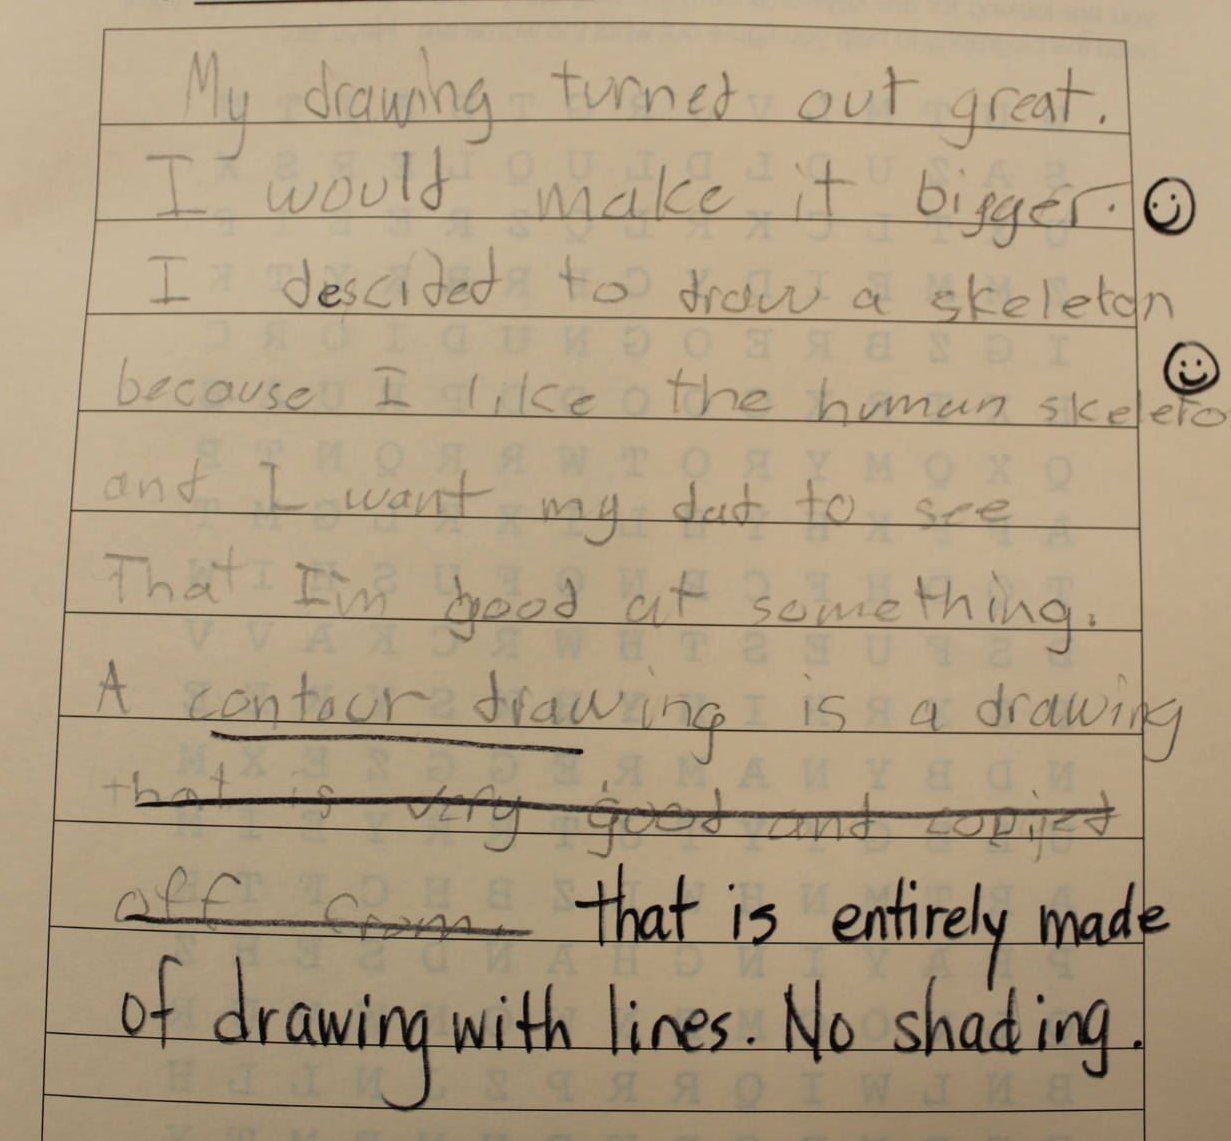 My drawing turned out great.
I would make it bigger.
I descided to draw a skeleton
because I like the human skeleto
and I want my dad to see
That I'm good at something.
A contour drawing is a drawing
that is very good and copijed
off from. that is entirely made
of drawing with lines. No shading.